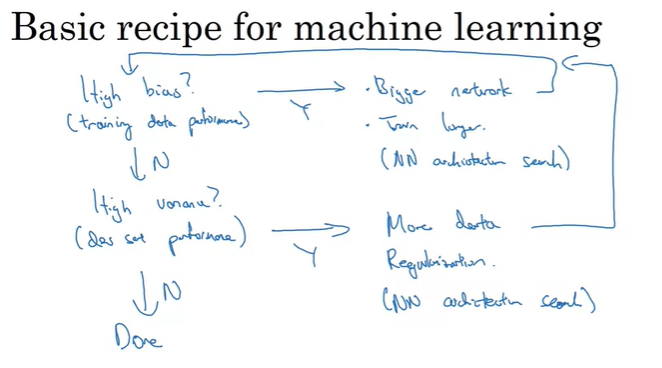 Basic recipe for machine learning
High bias?
(training data performance)
Y
• Bigger network
• Train longer.
(NN architecture search)
N
High variance?
(dev set performance)
Y
More data
Regularization.
(NN architecture search)
N
Done